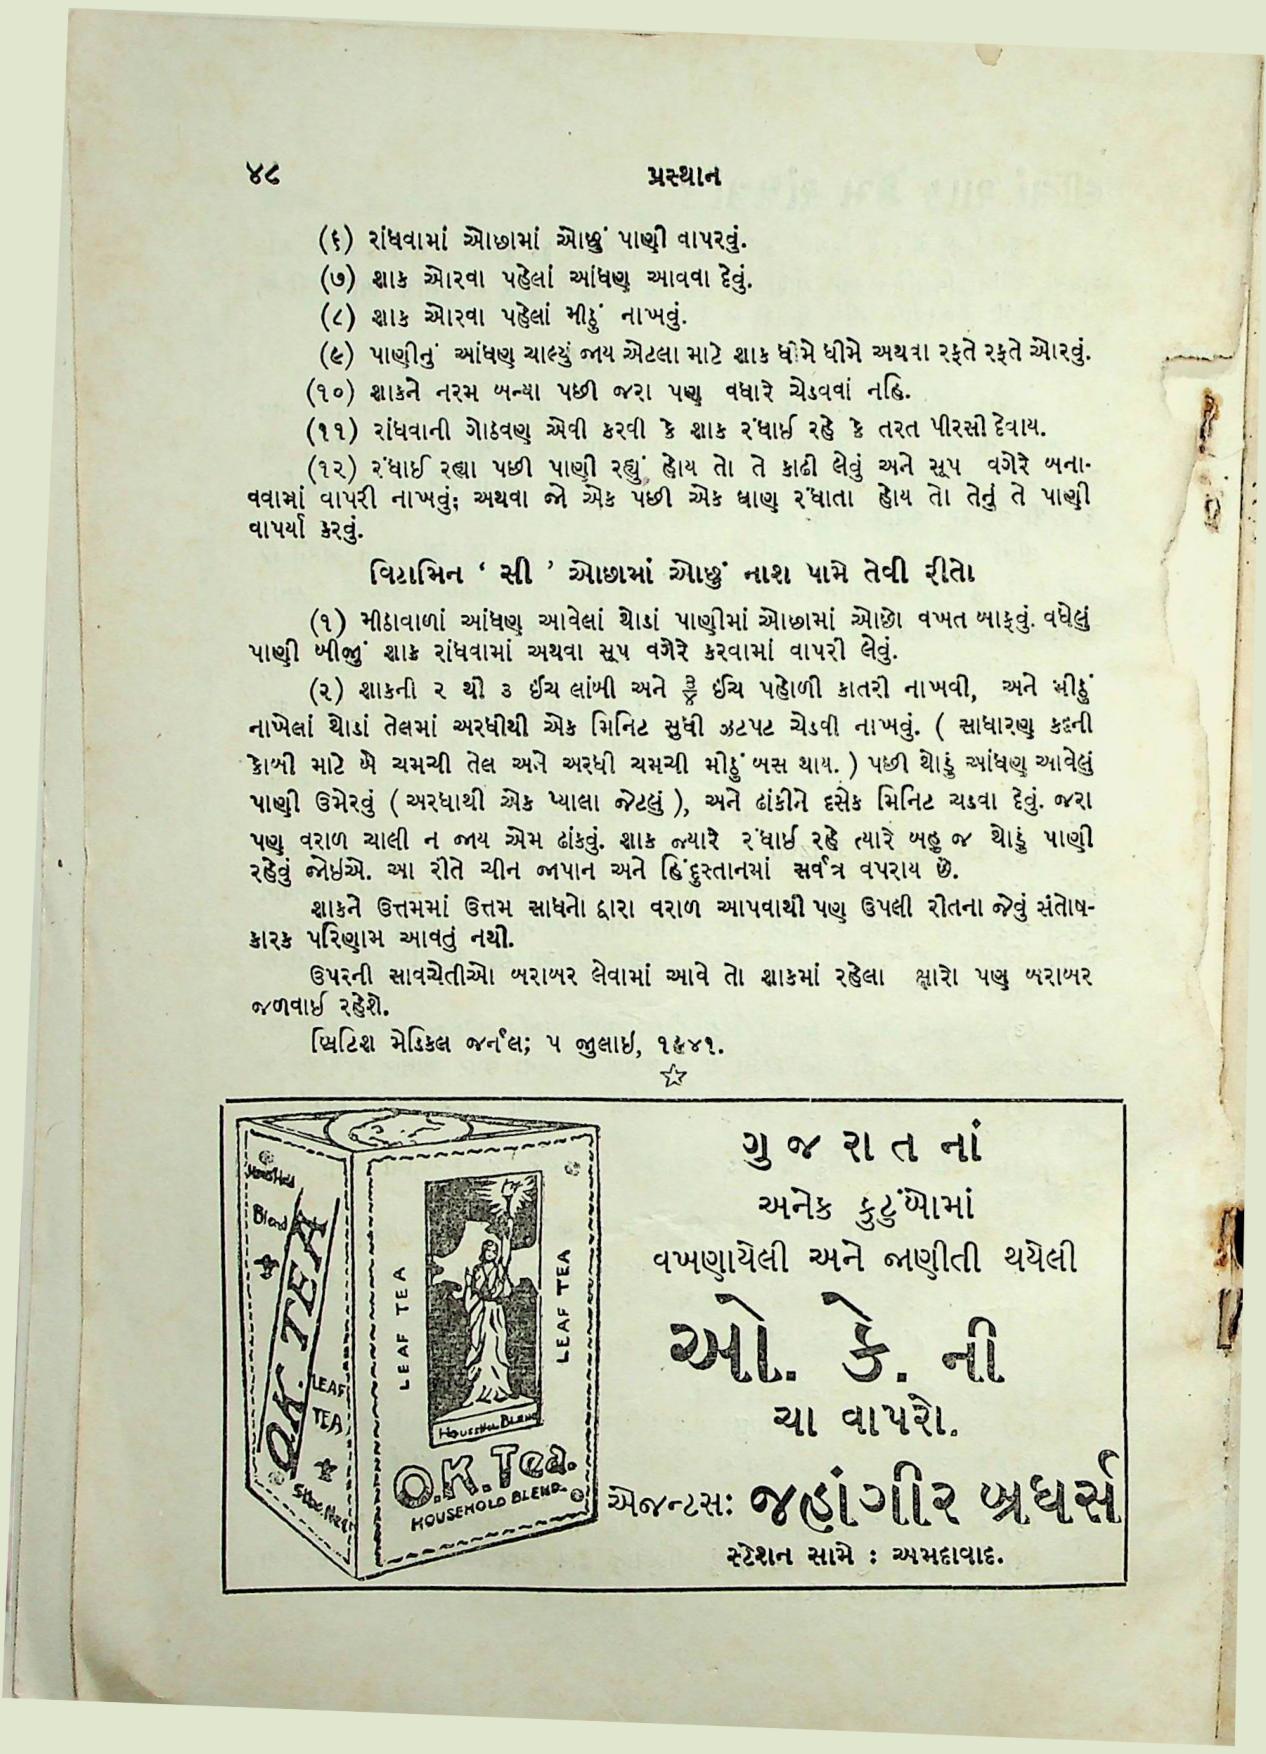 ૪૮
પ્રસ્થાન
(૬) રાંધવામાં ઓછામાં ઓછું પાણી વાપરવું.
(૭) શાક ઓરવા પહેલાં આંધણ આવવા દેવું.
(૮) શાક ઓરવા પહેલાં મીઠું નાખવું.
(૯) પાણીનું આંધણ ચાલ્યું જાય એટલા માટે શાક ધીમે ધીમે અથવા રફતે રફતે ઓરવું.
(૧૦) શાકને નરમ બન્યા પછી જરા પણ વધારે ચેડવવાં નહિ.
(૧૧) રાંધવાની ગોઠવણ એવી કરવી કે શાક રંધાઈ રહે કે તરત પીરસી દેવાય.
(૧૨) રંધાઈ રહ્યા પછી પાણી રહ્યું હોય તો તે કાઢી લેવું અને સૂપ વગેરે બના-
વવામાં વાપરી નાખવું; અથવા જો એક પછી એક ઘાણ રંધાતા હોય તો તેનું તે પાણી
વાપર્યા કરવું.
વિટામિન ‘ સી ’ ઓછામાં ઓછું નાશ પામે તેવી રીતો
(૧) મીઠાવાળાં આંધણ આવેલાં થોડાં પાણીમાં ઓછામાં ઓછો વખત બાફવું. વધેલું
પાણી બીજું શાક રાંધવામાં અથવા સૂપ વગેરે કરવામાં વાપરી લેવું.
(૨) શાકની ૨ થી ૩ ઈંચ લાંબી અને ૩/૪ ઈંચ પહોળી કાતરી નાખવી, અને મીઠું
નાખેલાં થોડાં તેલમાં અરધીથી એક મિનિટ સુધી ઝટપટ ચેડવી નાખવું. ( સાધારણ કદની
કોબી માટે બે ચમચી તેલ અને અરધી ચમચી મીઠું બસ થાય. ) પછી થોડું આંધણ આવેલું
પાણી ઉમેરવું ( અરધાથી એક પ્યાલા જેટલું ), અને ઢાંકીને દસેક મિનિટ ચડવા દેવું. જરા
પણ વરાળ ચાલી ન જાય એમ ઢાંકવું. શાક જ્યારે રંધાઈ રહે ત્યારે બહુ જ થોડું પાણી
રહેવું જોઇએ. આ રીતે ચીન જાપાન અને હિંદુસ્તાનમાં સર્વત્ર વપરાય છે.
શાકને ઉત્તમમાં ઉત્તમ સાધનો દ્વારા વરાળ આપવાથી પણ ઉપલી રીતના જેવું સંતોષ-
કારક પરિણામ આવતું નથી.
ઉપરની સાવચેતીઓ બરાબર લેવામાં આવે તો શાકમાં રહેલા ક્ષારો પણ બરાબર
જળવાઈ રહેશે.
બ્રિટિશ મેડિકલ જર્નલ; ૫ જુલાઇ, ૧૯૪૧.
HouseHold
Blend
O.K. TEA
LEAF
TEA
LEAF TEA
LEAF TEA
HOUSEHOLD BLEND
O.K. Tea.
HOUSEHOLD BLEND.
ગુજરાતનાં
અનેક કુટુંબોમાં
વખણાયેલી અને જાણીતી થયેલી
ઓ. કે. ની
ચા વાપરો.
એજન્ટસ: જહાંગીર બ્રધર્સ
સ્ટેશન સામે : અમદાવાદ.